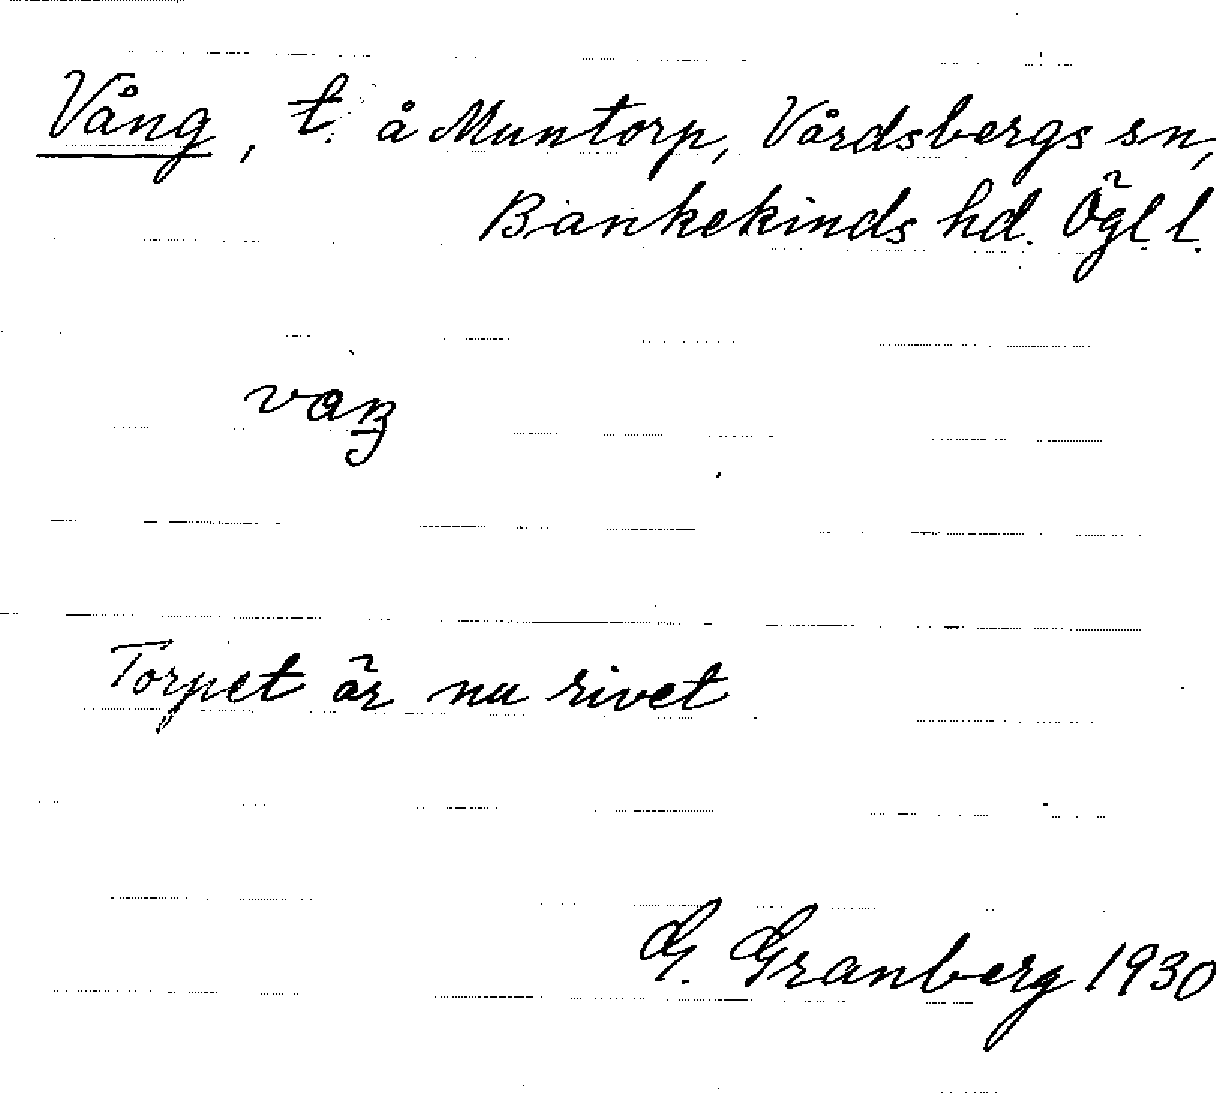 Vång, t. å Muntorp, Vårdsbergs sn,
Bankekinds hd. Ögl. l.
Torpet är nu rivet
G. Granberg 1930